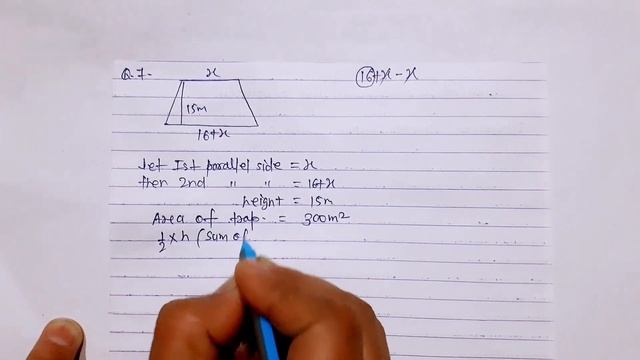 Q.7-
x
16+x-x
15m
16+x
Let Ist parallel side = x
then 2nd " " = 16+x
height = 15m
Area of trap. = 300m²
1/2 × h (Sum of